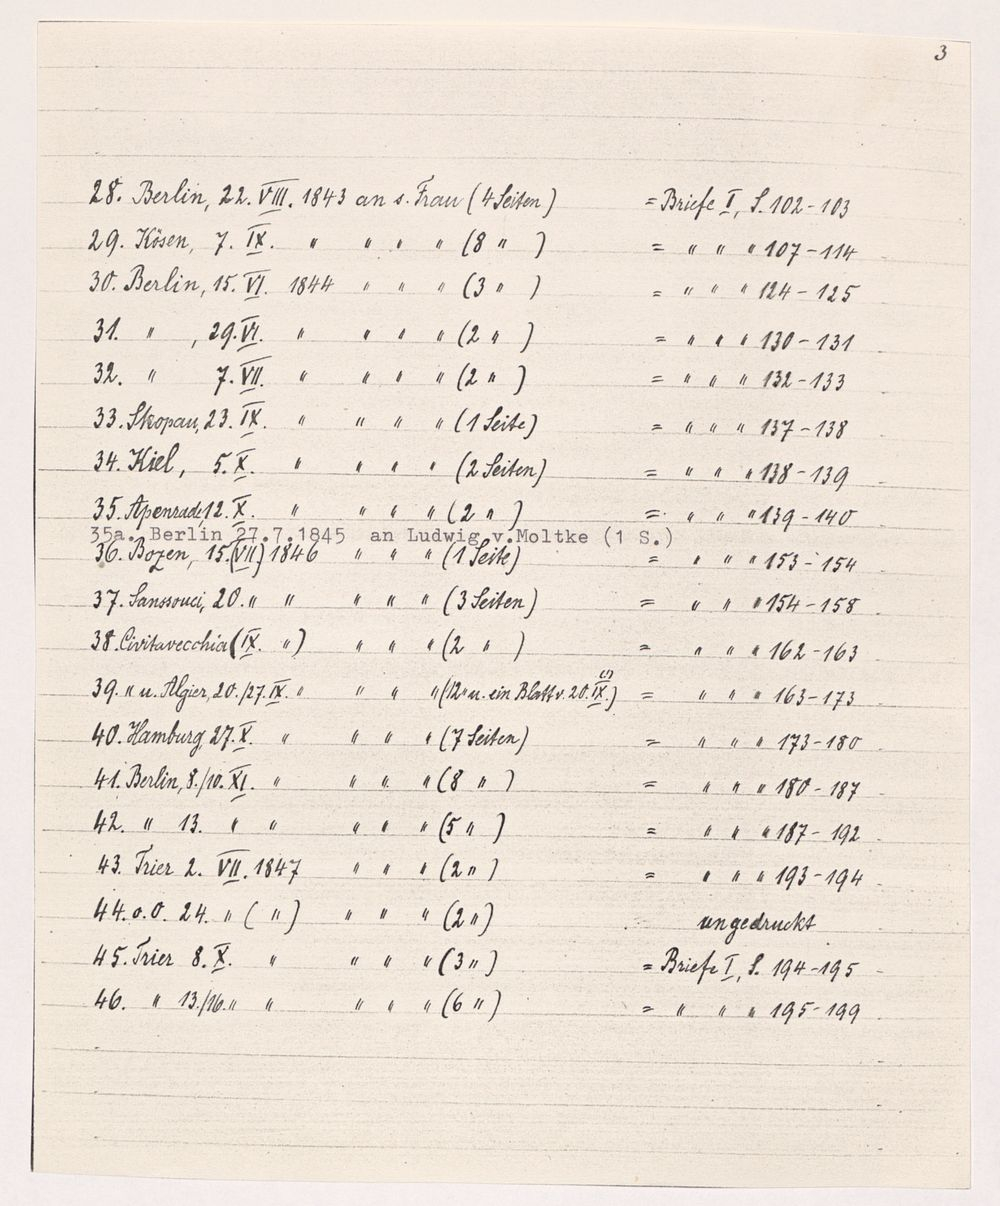 3
28. Berlin, 22. VIII. 1843 an s. Frau (4 Seiten) = Briefe I, S. 102-103
29. Kösen, 7. IX. " " " " (8 " ) = " " " 107-114
30. Berlin, 15. VI. 1844 " " " (3 " ) = " " " 124-125
31. " , 29. VI. " " " " (2 " ) = " " " 130-131
32. " 7. VII. " " " " (2 " ) = " " " 132-133
33. Skopau, 23. IX. " " " " (1 Seite) = " " " 137-138
34. Kiel, 5. X. " " " " (2 Seiten) = " " " 138-139
35. Apenrade, 12. X. " " " " (2 " ) = " " " 139-140
35a. Berlin 27.7.1845 an Ludwig v.Moltke (1 S.)
36. Bozen, 15. (VII.) 1846 " " " (1 Seite) = " " " 153-154
37. Sanssouci, 20. " " " " " (3 Seiten) = " " " 154-158
38. Civitavecchia (IX. ") " " " (2 " ) = " " " 162-163
39. " u. Algier, 20./27. IX. " " " " (12 " u. ein Blatt v. 20. IX. (?)) = " " " 163-173
40. Hamburg 27. X. " " " " (7 Seiten) = " " " 173-180
41. Berlin, 8./10. XI. " " " " (8 " ) = " " " 180-187
42. " 13. " " " " " (5 " ) = " " " 187-192
43. Trier 2. VII. 1847 " " " (2 " ) = " " " 193-194
44. o.O. 24. " ( " ) " " " (2 ") ungedruckt
45. Trier 8. X. " " " " (3 ") = Briefe I, S. 194-195
46. " 13./16. " " " " " (6 ") = " " " 195-199